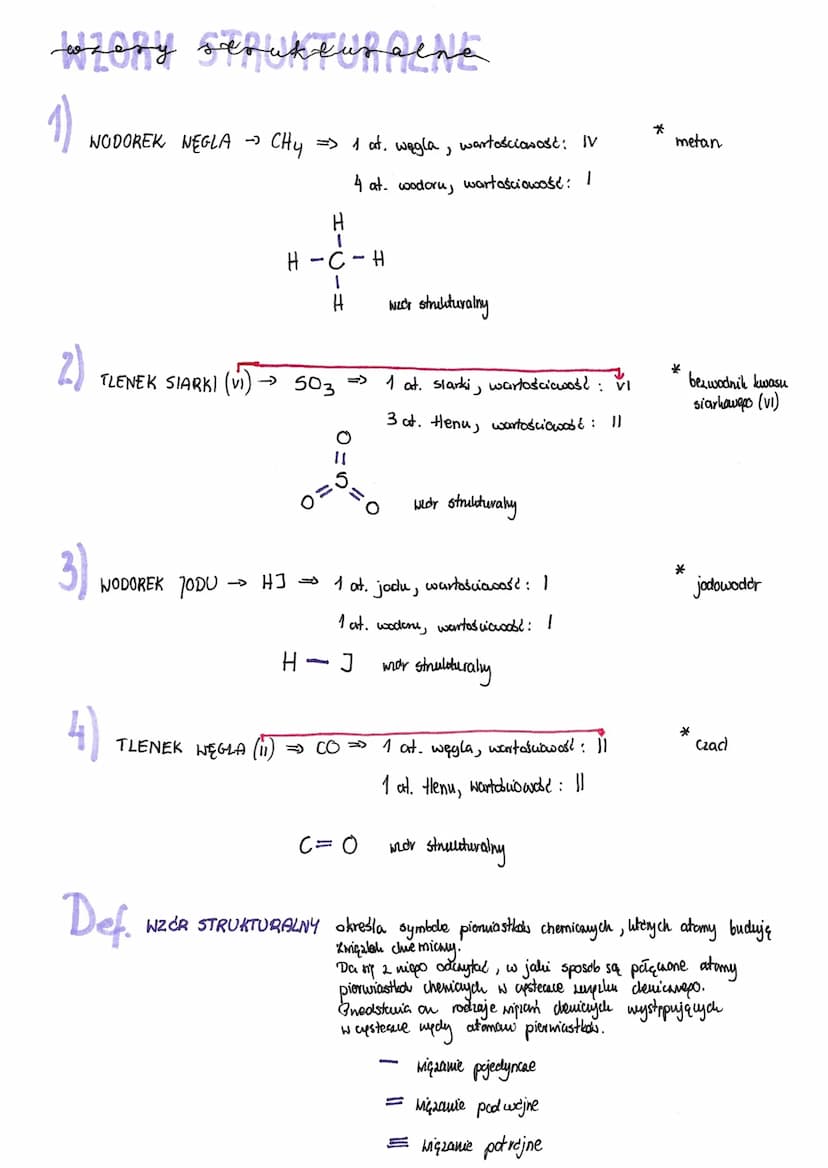 WZORY STRUKTURALNE
wzory strukturalne
1) WODOREK WĘGLA → CH4 ⇒ 1 at. węgla, wartościowość: IV * metan
4 at. wodoru, wartościowość: I
H
H - C - H
H wzór strukturalny
2) TLENEK SIARKI (VI) → SO3 ⇒ 1 at. siarki, wartościowość: VI * bezwodnik kwasu
siarkowego (VI)
3 at. tlenu, wartościowość: II
O
S
O O wzór strukturalny
3) WODOREK JODU → HJ ⇒ 1 at. jodu, wartościowość: I * jodowodór
1 at. wodoru, wartościowość: I
H — J wzór strukturalny
4) TLENEK WĘGLA (II) ⇒ CO ⇒ 1 at. węgla, wartościowość: II * czad
1 at. tlenu, wartościowość: II
C = O wzór strukturalny
Def. WZÓR STRUKTURALNY określa symbole pierwiastków chemicznych, których atomy budują
związek chemiczny.
Da się z niego odczytać, w jaki sposób są połączone atomy
pierwiastków chemicznych w cząsteczce związku chemicznego.
Przedstawia on rodzaje wiązań chemicznych występujących
w cząsteczce między atomami pierwiastków.
— wiązanie pojedyncze
= wiązanie podwójne
≡ wiązanie potrójne